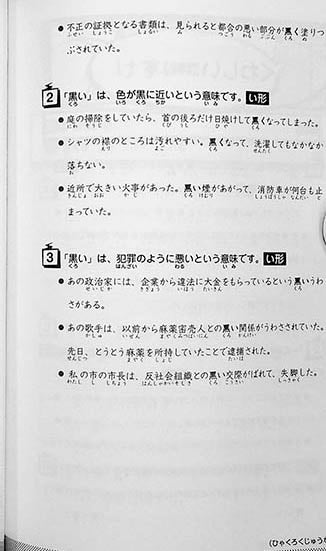 ● 不正の証拠となる書類は、見られると都合の悪い部分が黒く塗りつ
ぶされていた。
2 「黒い」は、色が黒に近いという意味です。 い形
● 庭の掃除をしていたら、首の後ろだけ日焼けして黒くなってしまった。
● シャツの襟のところは汚れやすい。黒くなって、洗濯してもなかなか
落ちない。
● 近所で大きい火事があった。黒い煙があがって、消防車が何台も止
まっていた。
3 「黒い」は、犯罪のように悪いという意味です。 い形
● あの政治家には、企業から違法に大金をもらっているという黒いうわ
さがある。
● あの歌手は、以前から麻薬密売人との黒い関係がうわさされていた。
先日、とうとう麻薬を所持していたことで逮捕された。
● 私の市の市長は、反社会組織との黒い交際がばれて、失脚した。
(ひゃくろくじゅう